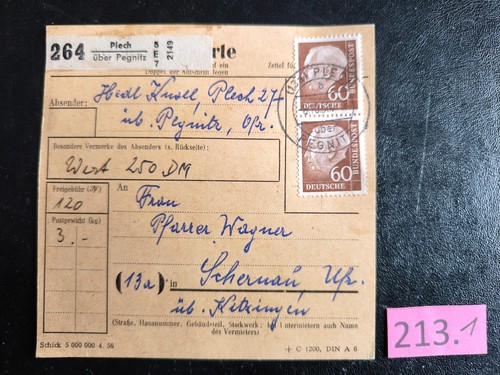 264
Plech
über Pegnitz
5
E
7
2149
rte
Zettel fü
Doppel der Aufschrift legen
60
DEUTSCHE
BUNDESPOST
60
DEUTSCHE
BUNDESPOST
über
PEGNIT
Absender:
Plech 27
üb. Pegnitz, Ofr.
Besondere Vermerke des Absenders (s. Rückseite):
Wert 250 DM
Freigebühr
120
Postgewicht (kg)
3.-
An
Frau
Pfarrer Wagner
(13a) in Schernau, Ufr.
üb. Kitzingen
(Straße, Hausnummer, Gebäudeteil, Stockwerk; bei Untermietern auch Name
des Vermieters)
Schick 5 000 000 4. 56
+ C 1200, DIN A 6
213.1